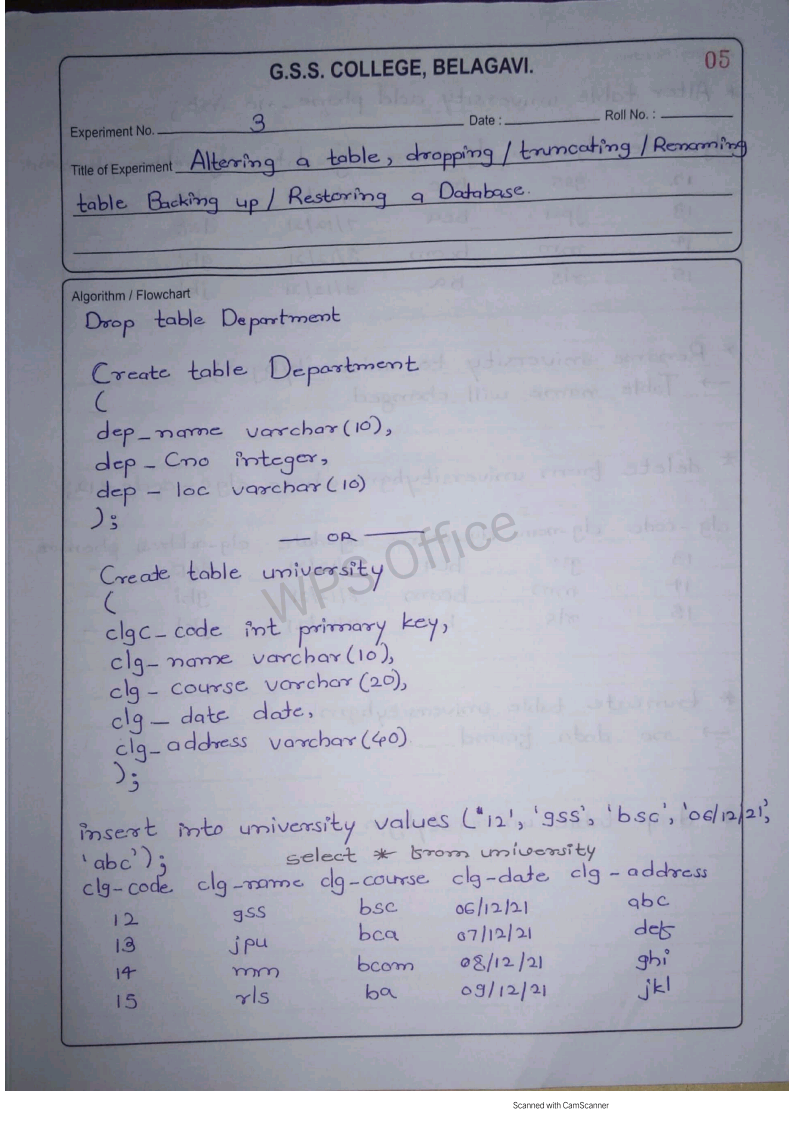 05
G.S.S. COLLEGE, BELAGAVI.
Experiment No. 3 Date : Roll No. :
Title of Experiment Altering a table, dropping / truncating / Renaming
table Backing up / Restoring a Database.
Algorithm / Flowchart
Drop table Department
Create table Department
(
dep_name varchar(10),
dep - Cno integer,
dep - loc varchar(10)
);
— OR —
Create table university
(
clgc-code int primary key,
clg-name varchar(10),
clg - course varchar(20),
clg - date date,
clg-address varchar(40)
);
insert into university values ('12', 'gss', 'bsc', '06/12/21',
'abc'); select * from university
clg-code clg-name clg-course clg-date clg - address
12 gss bsc 06/12/21 abc
13 jpu bca 07/12/21 def
14 mm bcom 08/12/21 ghi
15 rls ba 09/12/21 jkl
WPS Office
Scanned with CamScanner